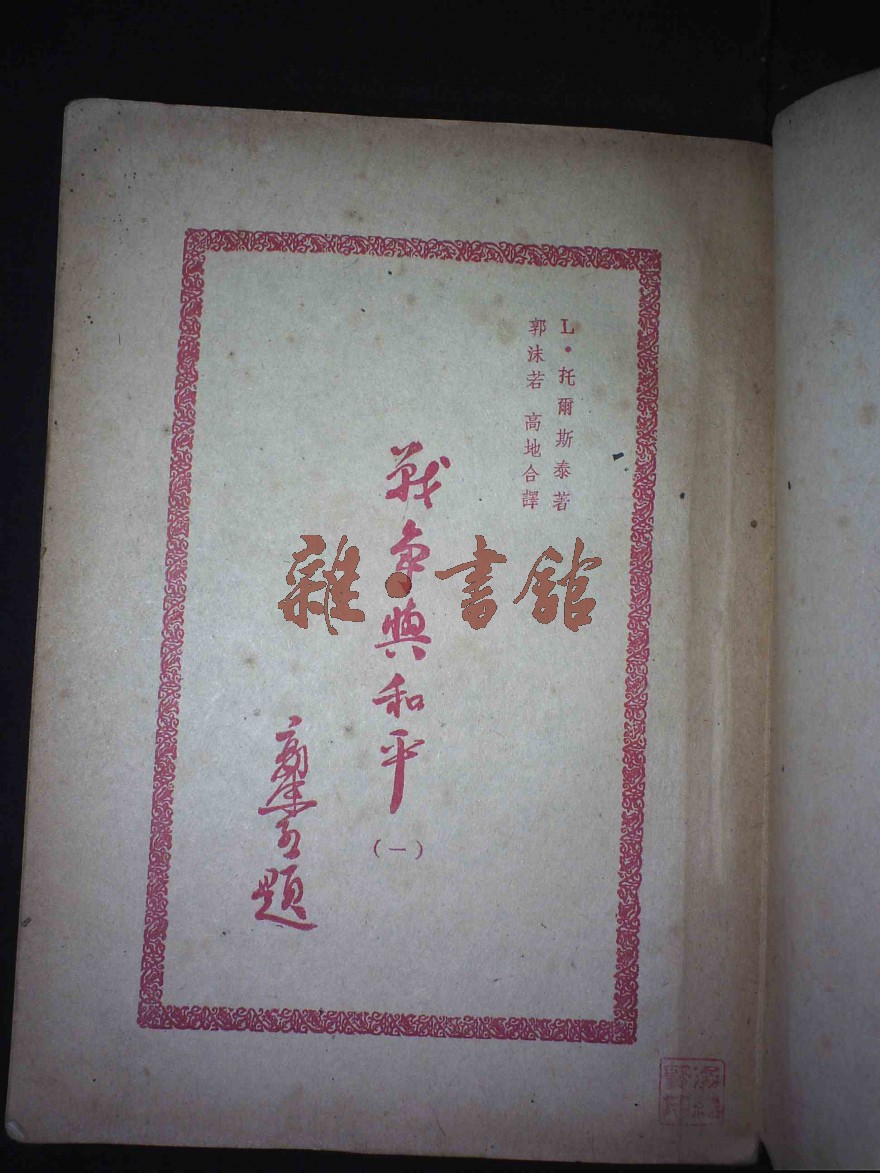 L·托爾斯泰著
郭沫若 高地合譯
戰争與和平
(一)
題
雜·書館